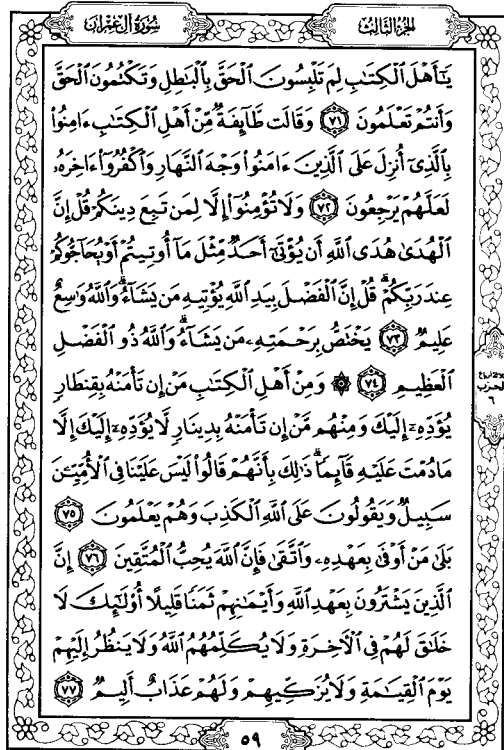 سورة آل عمران
الجزء الثالث
يَٰٓأَهْلَ ٱلْكِتَٰبِ لِمَ تَلْبِسُونَ ٱلْحَقَّ بِٱلْبَٰطِلِ وَتَكْتُمُونَ ٱلْحَقَّ
وَأَنتُمْ تَعْلَمُونَ ٧١ وَقَالَت طَّآئِفَةٌ مِّنْ أَهْلِ ٱلْكِتَٰبِ ءَامِنُوا۟
بِٱلَّذِىٓ أُنزِلَ عَلَى ٱلَّذِينَ ءَامَنُوا۟ وَجْهَ ٱلنَّهَارِ وَٱكْفُرُوٓا۟ ءَاخِرَهُۥ
لَعَلَّهُمْ يَرْجِعُونَ ٧٢ وَلَا تُؤْمِنُوٓا۟ إِلَّا لِمَن تَبِعَ دِينَكُمْ قُلْ إِنَّ
ٱلْهُدَىٰ هُدَى ٱللَّهِ أَن يُؤْتَىٰٓ أَحَدٌ مِّثْلَ مَآ أُوتِيتُمْ أَوْ يُحَآجُّوكُمْ
عِندَ رَبِّكُمْ ۗ قُلْ إِنَّ ٱلْفَضْلَ بِيَدِ ٱللَّهِ يُؤْتِيهِ مَن يَشَآءُ ۗ وَٱللَّهُ وَٰسِعٌ
عَلِيمٌ ٧٣ يَخْتَصُّ بِرَحْمَتِهِۦ مَن يَشَآءُ ۗ وَٱللَّهُ ذُو ٱلْفَضْلِ
ٱلْعَظِيمِ ٧٤ ۞ وَمِنْ أَهْلِ ٱلْكِتَٰبِ مَنْ إِن تَأْمَنْهُ بِقِنطَارٍ
يُؤَدِّهِۦٓ إِلَيْكَ وَمِنْهُم مَّنْ إِن تَأْمَنْهُ بِدِينَارٍ لَّا يُؤَدِّهِۦٓ إِلَيْكَ إِلَّا
مَا دُمْتَ عَلَيْهِ قَآئِمًا ۗ ذَٰلِكَ بِأَنَّهُمْ قَالُوا۟ لَيْسَ عَلَيْنَا فِى ٱلْأُمِّيِّـۧنَ
سَبِيلٌ وَيَقُولُونَ عَلَى ٱللَّهِ ٱلْكَذِبَ وَهُمْ يَعْلَمُونَ ٧٥
بَلَىٰ مَنْ أَوْفَىٰ بِعَهْدِهِۦ وَٱتَّقَىٰ فَإِنَّ ٱللَّهَ يُحِبُّ ٱلْمُتَّقِينَ ٧٦ إِنَّ
ٱلَّذِينَ يَشْتَرُونَ بِعَهْدِ ٱللَّهِ وَأَيْمَٰنِهِمْ ثَمَنًا قَلِيلًا أُو۟لَٰٓئِكَ لَا
خَلَٰقَ لَهُمْ فِى ٱلْءَاخِرَةِ وَلَا يُكَلِّمُهُمُ ٱللَّهُ وَلَا يَنظُرُ إِلَيْهِمْ
يَوْمَ ٱلْقِيَٰمَةِ وَلَا يُزَكِّيهِمْ وَلَهُمْ عَذَابٌ أَلِيمٌ ٧٧
الحزب
٦
٥٩